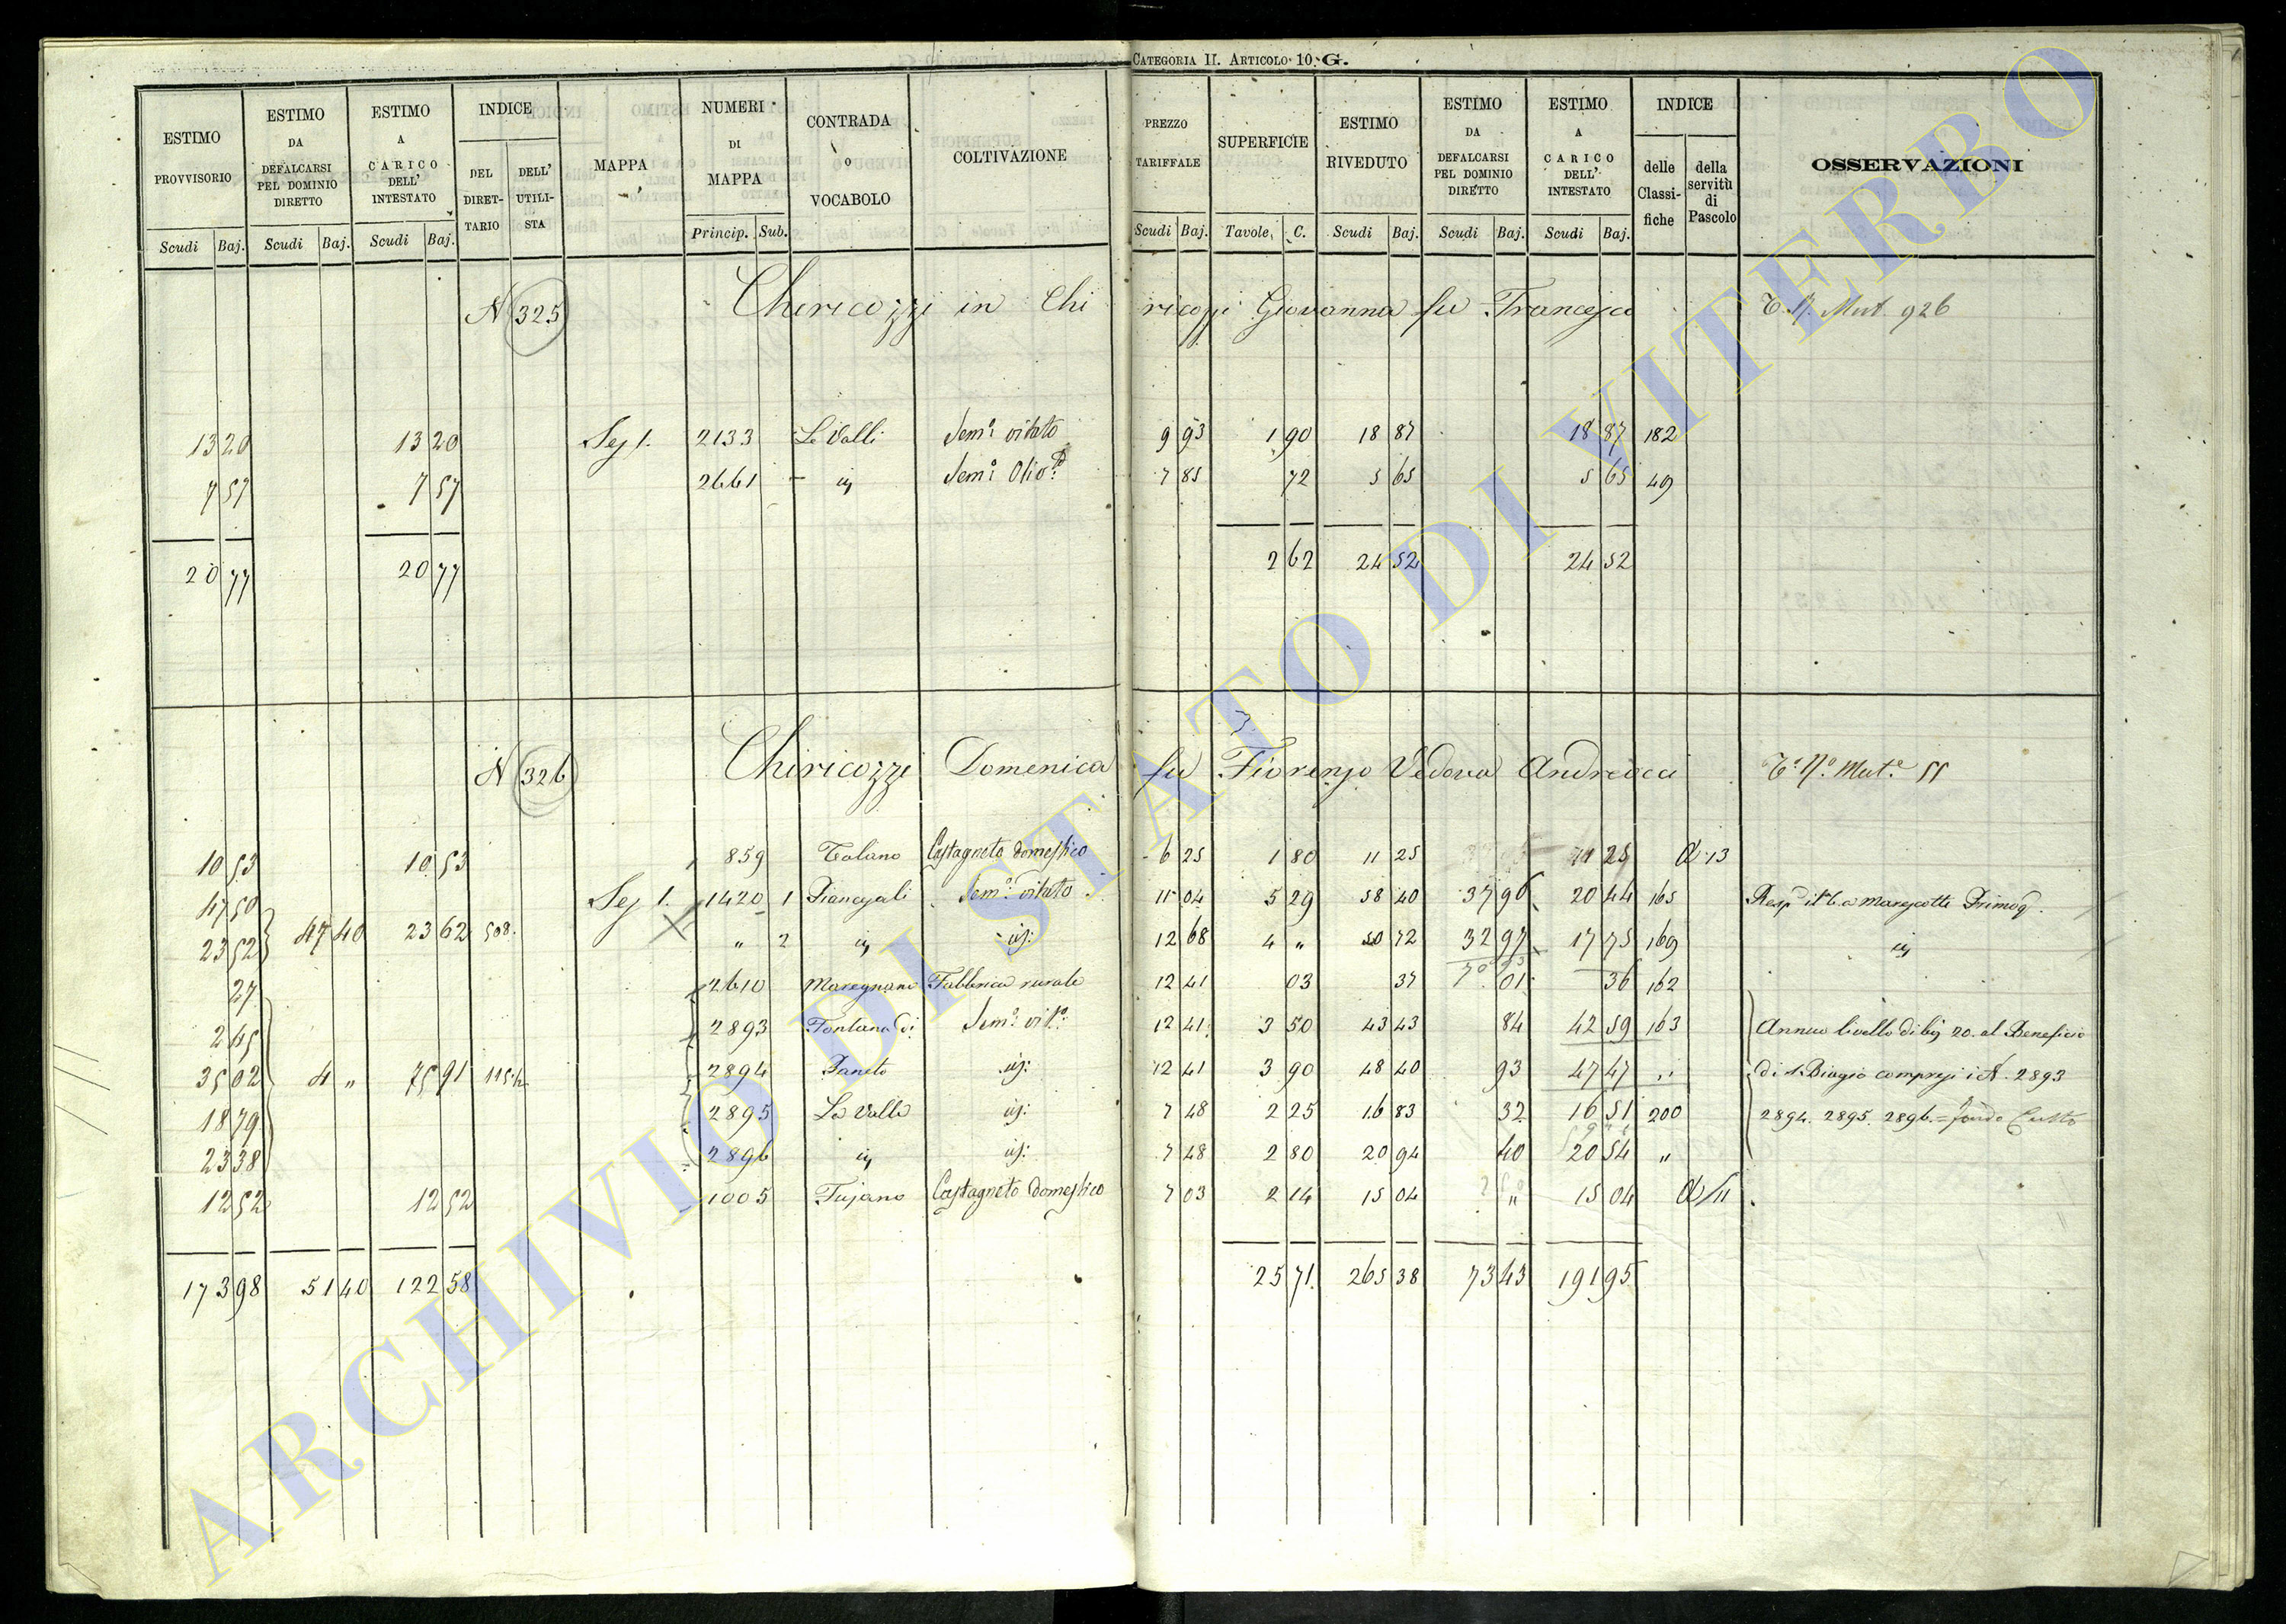 CATEGORIA II. ARTICOLO 10. G.
ESTIMO PROVVISORIO | ESTIMO DA DEFALCARSI PEL DOMINIO DIRETTO | ESTIMO A CARICO DELL' INTESTATO | INDICE DEL DIRETTARIO | DELL' UTILISTA | MAPPA | NUMERI DI MAPPA | CONTRADA O VOCABOLO | COLTIVAZIONE | PREZZO TARIFFALE | SUPERFICIE | ESTIMO RIVEDUTO | ESTIMO DA DEFALCARSI PEL DOMINIO DIRETTO | ESTIMO A CARICO DELL' INTESTATO | INDICE delle Classifiche | della servitù di Pascolo | OSSERVAZIONI
Scudi Baj. | Scudi Baj. | Scudi Baj. | Princip. Sub. | Scudi Baj. | Tavole C. | Scudi Baj. | Scudi Baj. | Scudi Baj.
N 325 Chiricozzi in Chiricozzi Giovanna fu Francesco Mut. 926
13 20 | 13 20 | Sez 1. | 2133 | Le Valli | Sem.o vitato | 9 93 | 1 90 | 18 87 | 18 87 | 182
7 57 | 7 57 | 2661 | 7 85 | 72 | 5 65 | 5 65 | 49
20 77 | 20 77 | 2 62 | 24 52 | 24 52
N 326 Chiricozzi Domenica fu Fiorenzo Vedova Andreocci Mut.e 55
10 53 | 10 53 | 859 | Castagneto domestico | 6 25 | 1 80 | 11 25 | 11 25 | 13
47 50 | Sez 1. | 1420 | 1 | Sem.o vitato | 11 04 | 5 29 | 58 40 | 37 96 | 20 44 | 165 | Marescotti Primog.
23 52 | 47 40 | 23 62 | 508. | " | 2 | 12 68 | 4 " | 50 72 | 32 97 | 17 75 | 169
27 | 2610 | Fabbrica rurale | 12 41 | 03 | 37 | 01 | 36 | 162
2 45 | 2893 | Fontana di | Sem.o vit.o | 12 41 | 3 50 | 43 43 | 84 | 42 59 | 163 | Annuo livello di 20. al Beneficio
35 02 | 4 " | 75 91 | 2894 | 12 41 | 3 90 | 48 40 | 93 | 47 47 | di S. Biagio compresi i N. 2893
18 79 | 2895 | La Valle | 7 48 | 2 25 | 16 83 | 32 | 16 51 | 200 | 2894. 2895. 2896.
23 38 | 2896 | 7 48 | 2 80 | 20 94 | 40 | 20 54 | "
12 52 | 12 52 | 1005 | Castagneto domestico | 7 03 | 2 14 | 15 04 | " | 15 04 | 11
173 98 | 51 40 | 122 58 | 25 71 | 265 38 | 73 43 | 191 95
ARCHIVIO DI STATO DI VITERBO